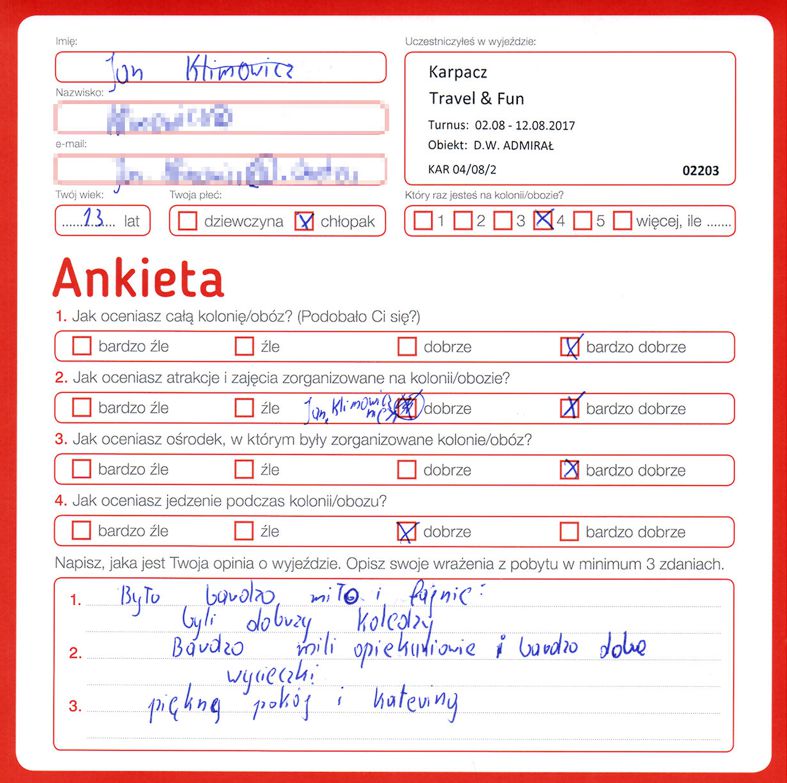 Imię:
Jan Klimowicz
Nazwisko:
e-mail:
Twój wiek:
13 lat
Twoja płeć:
dziewczyna chłopak
Uczestniczyłeś w wyjeździe:
Karpacz
Travel & Fun
Turnus: 02.08 - 12.08.2017
Obiekt: D.W. ADMIRAŁ
KAR 04/08/2 02203
Który raz jesteś na kolonii/obozie?
1 2 3 4 5 więcej, ile .......
Ankieta
1. Jak oceniasz całą kolonię/obóz? (Podobało Ci się?)
bardzo źle źle dobrze bardzo dobrze
2. Jak oceniasz atrakcje i zajęcia zorganizowane na kolonii/obozie?
bardzo źle źle Jan Klimowicz dobrze bardzo dobrze
3. Jak oceniasz ośrodek, w którym były zorganizowane kolonie/obóz?
bardzo źle źle dobrze bardzo dobrze
4. Jak oceniasz jedzenie podczas kolonii/obozu?
bardzo źle źle dobrze bardzo dobrze
Napisz, jaka jest Twoja opinia o wyjeździe. Opisz swoje wrażenia z pobytu w minimum 3 zdaniach.
1. Było bardzo miło i fajnie:
byli dobrzy koledzy
2. Bardzo mili opiekunowie i bardzo dobre
wycieczki
3. piękny pokój i kateriny